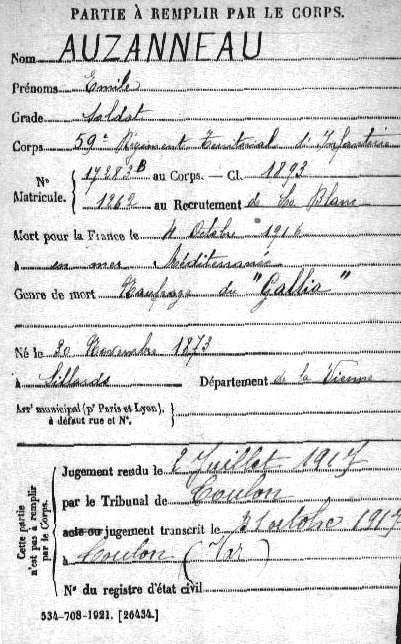 PARTIE À REMPLIR PAR LE CORPS.
Nom AUZANNEAU
Prénoms Emile
Grade Soldat
Corps 59e Régiment Territorial d'Infanterie
N° Matricule. { 17283 B au Corps. — Cl. 1893
1262 au Recrutement de Le Blanc
Mort pour la France le 4 Octobre 1916
à en mer Méditerranée
Genre de mort Naufrage du "Gallia"
Né le 30 Novembre 1873
à Sillards Département de la Vienne
Arr' municipal (p' Paris et Lyon), à défaut rue et N°. }
Cette partie n'est pas à remplir par le Corps.
Jugement rendu le 2 Juillet 1917
par le Tribunal de Toulon
acte ou jugement transcrit le octobre 1917
à Toulon (Var)
N° du registre d'état civil
534-708-1921. [26434.]